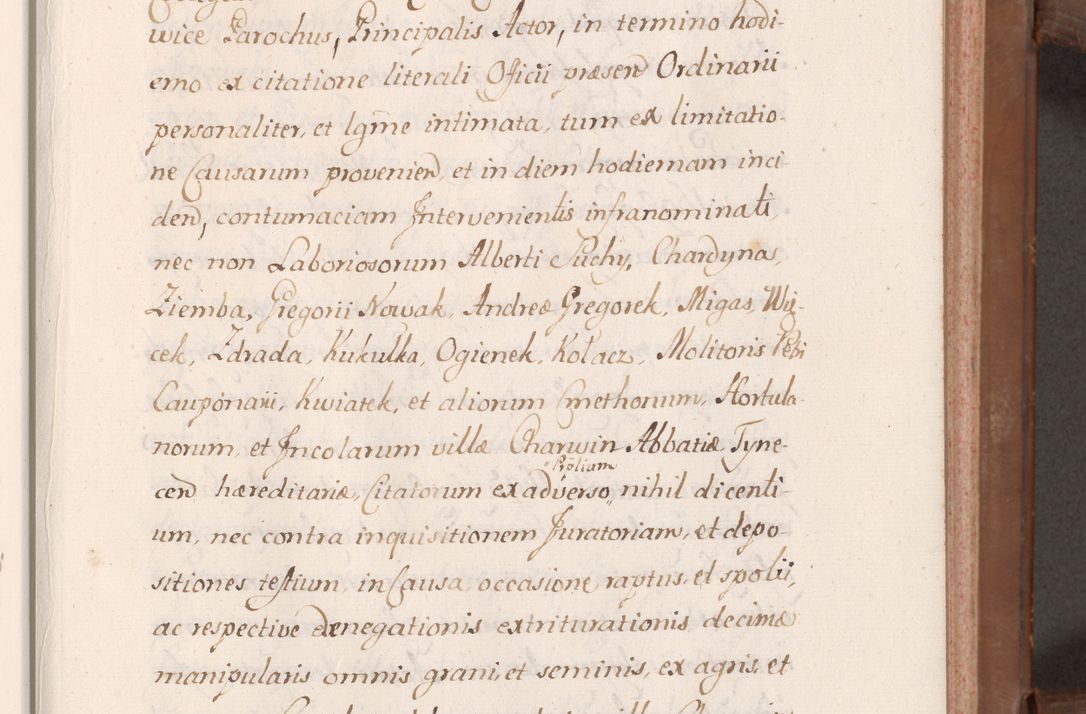 wice Parochus, Principalis Actor, in termino hodi-
erno ex citatione literali Officii præsen Ordinarii
personaliter, et lgme intimata, tum ex limitatio-
ne Causarum provenien, et in diem hodiernam inci
den, contumaciam Intervenientis infranominati,
nec non Laboriosorum Alberti Suchy, Chardynas,
Ziemba, Gregorii Nowak, Andreæ Gregorek, Migas, Wię-
cek, Zdrada, Kukulka, Ogienek, Kołacz, Molitoris Petri
Cauponarii, Kwiatek, et aliorum Cmethonum, Hortula-
norum, et Incolarum villæ Charwin Abbatiæ Tyne-
cen hæreditariæ, Citatorum ex adverso, nihil dicenti
um, nec contra inquisitionem Juratoriam, et depo
sitiones testium, in Causa, occasione raptus, et spolii,
ac respective denegationis extriturationis decimæ
manipularis omnis grani, et seminis, ex agris, et